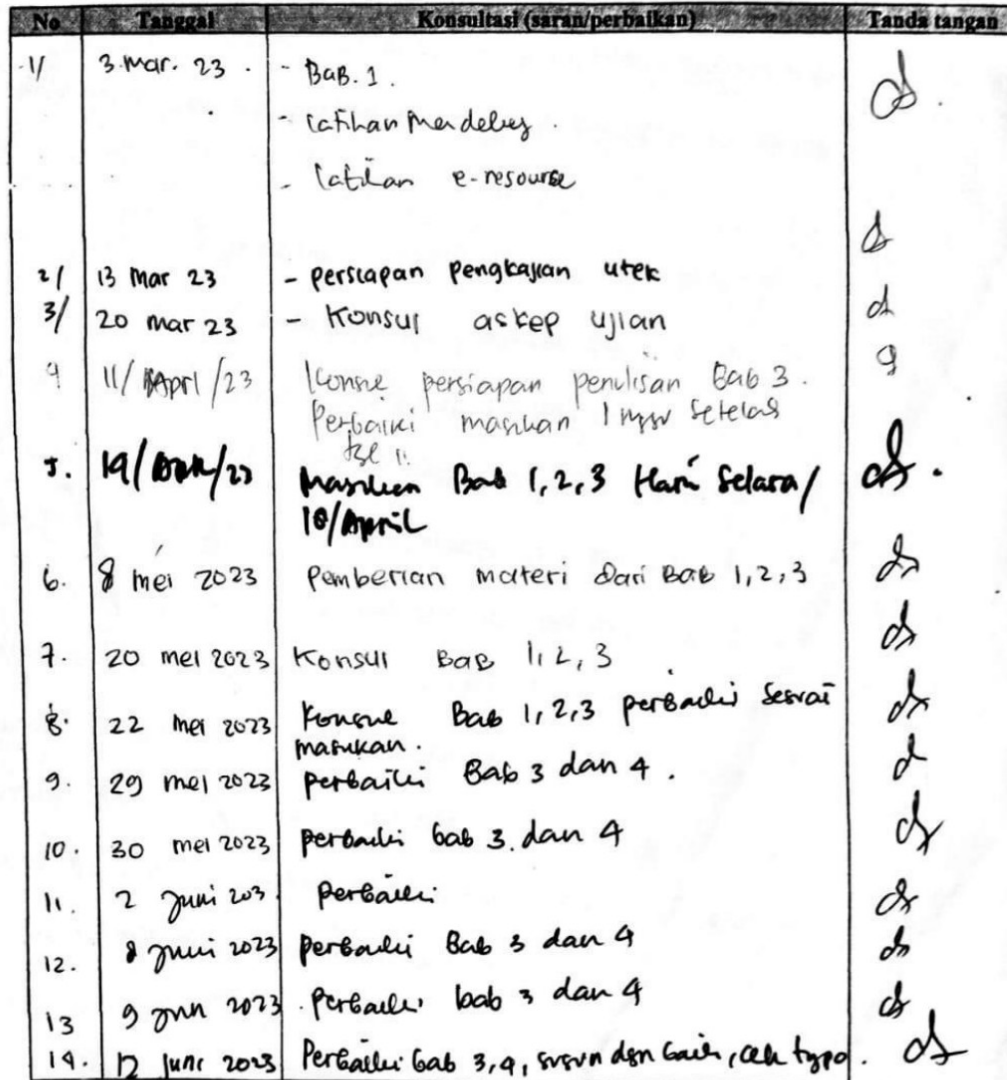 No Tanggal Konsultasi (saran/perbaikan) Tanda tangan
1/ 3 Mar. 23 - Bab. 1.
- Latihan Mendeley
- Latihan e-resourse
2/ 13 Mar 23 - persiapan pengkajian utek
3/ 20 mar 23 - Konsul askep ujian
4 11/April/23 Konsul persiapan penulisan Bab 3.
Perbaiki masukan setelah
5. Masukan Bab 1,2,3 Hari Selasa/
18/April
6. 8 mei 2023 Pemberian materi dari Bab 1,2,3
7. 20 mei 2023 Konsul Bab 1,2,3
8. 22 mei 2023 Konsul Bab 1,2,3 perbaiki sesuai
masukan.
9. 29 mei 2023 perbaiki Bab 3 dan 4.
10. 30 mei 2023 perbaiki bab 3 dan 4
11. 2 Juni 203 perbaiki
12. 8 Juni 2023 perbaiki Bab 3 dan 4
13 9 Jun 2023 Perbaiki bab 3 dan 4
14. 12 Juni 2023 Perbaiki bab 3,4, susun dgn baik, cek typo.